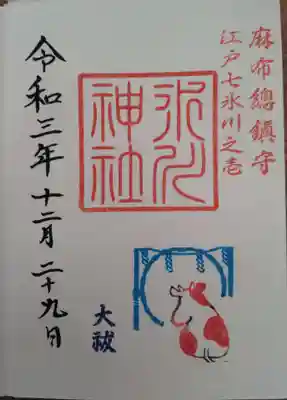 麻布總鎮守
江戸七氷川之壱
氷川
神社
令和三年十二月二十九日
大祓